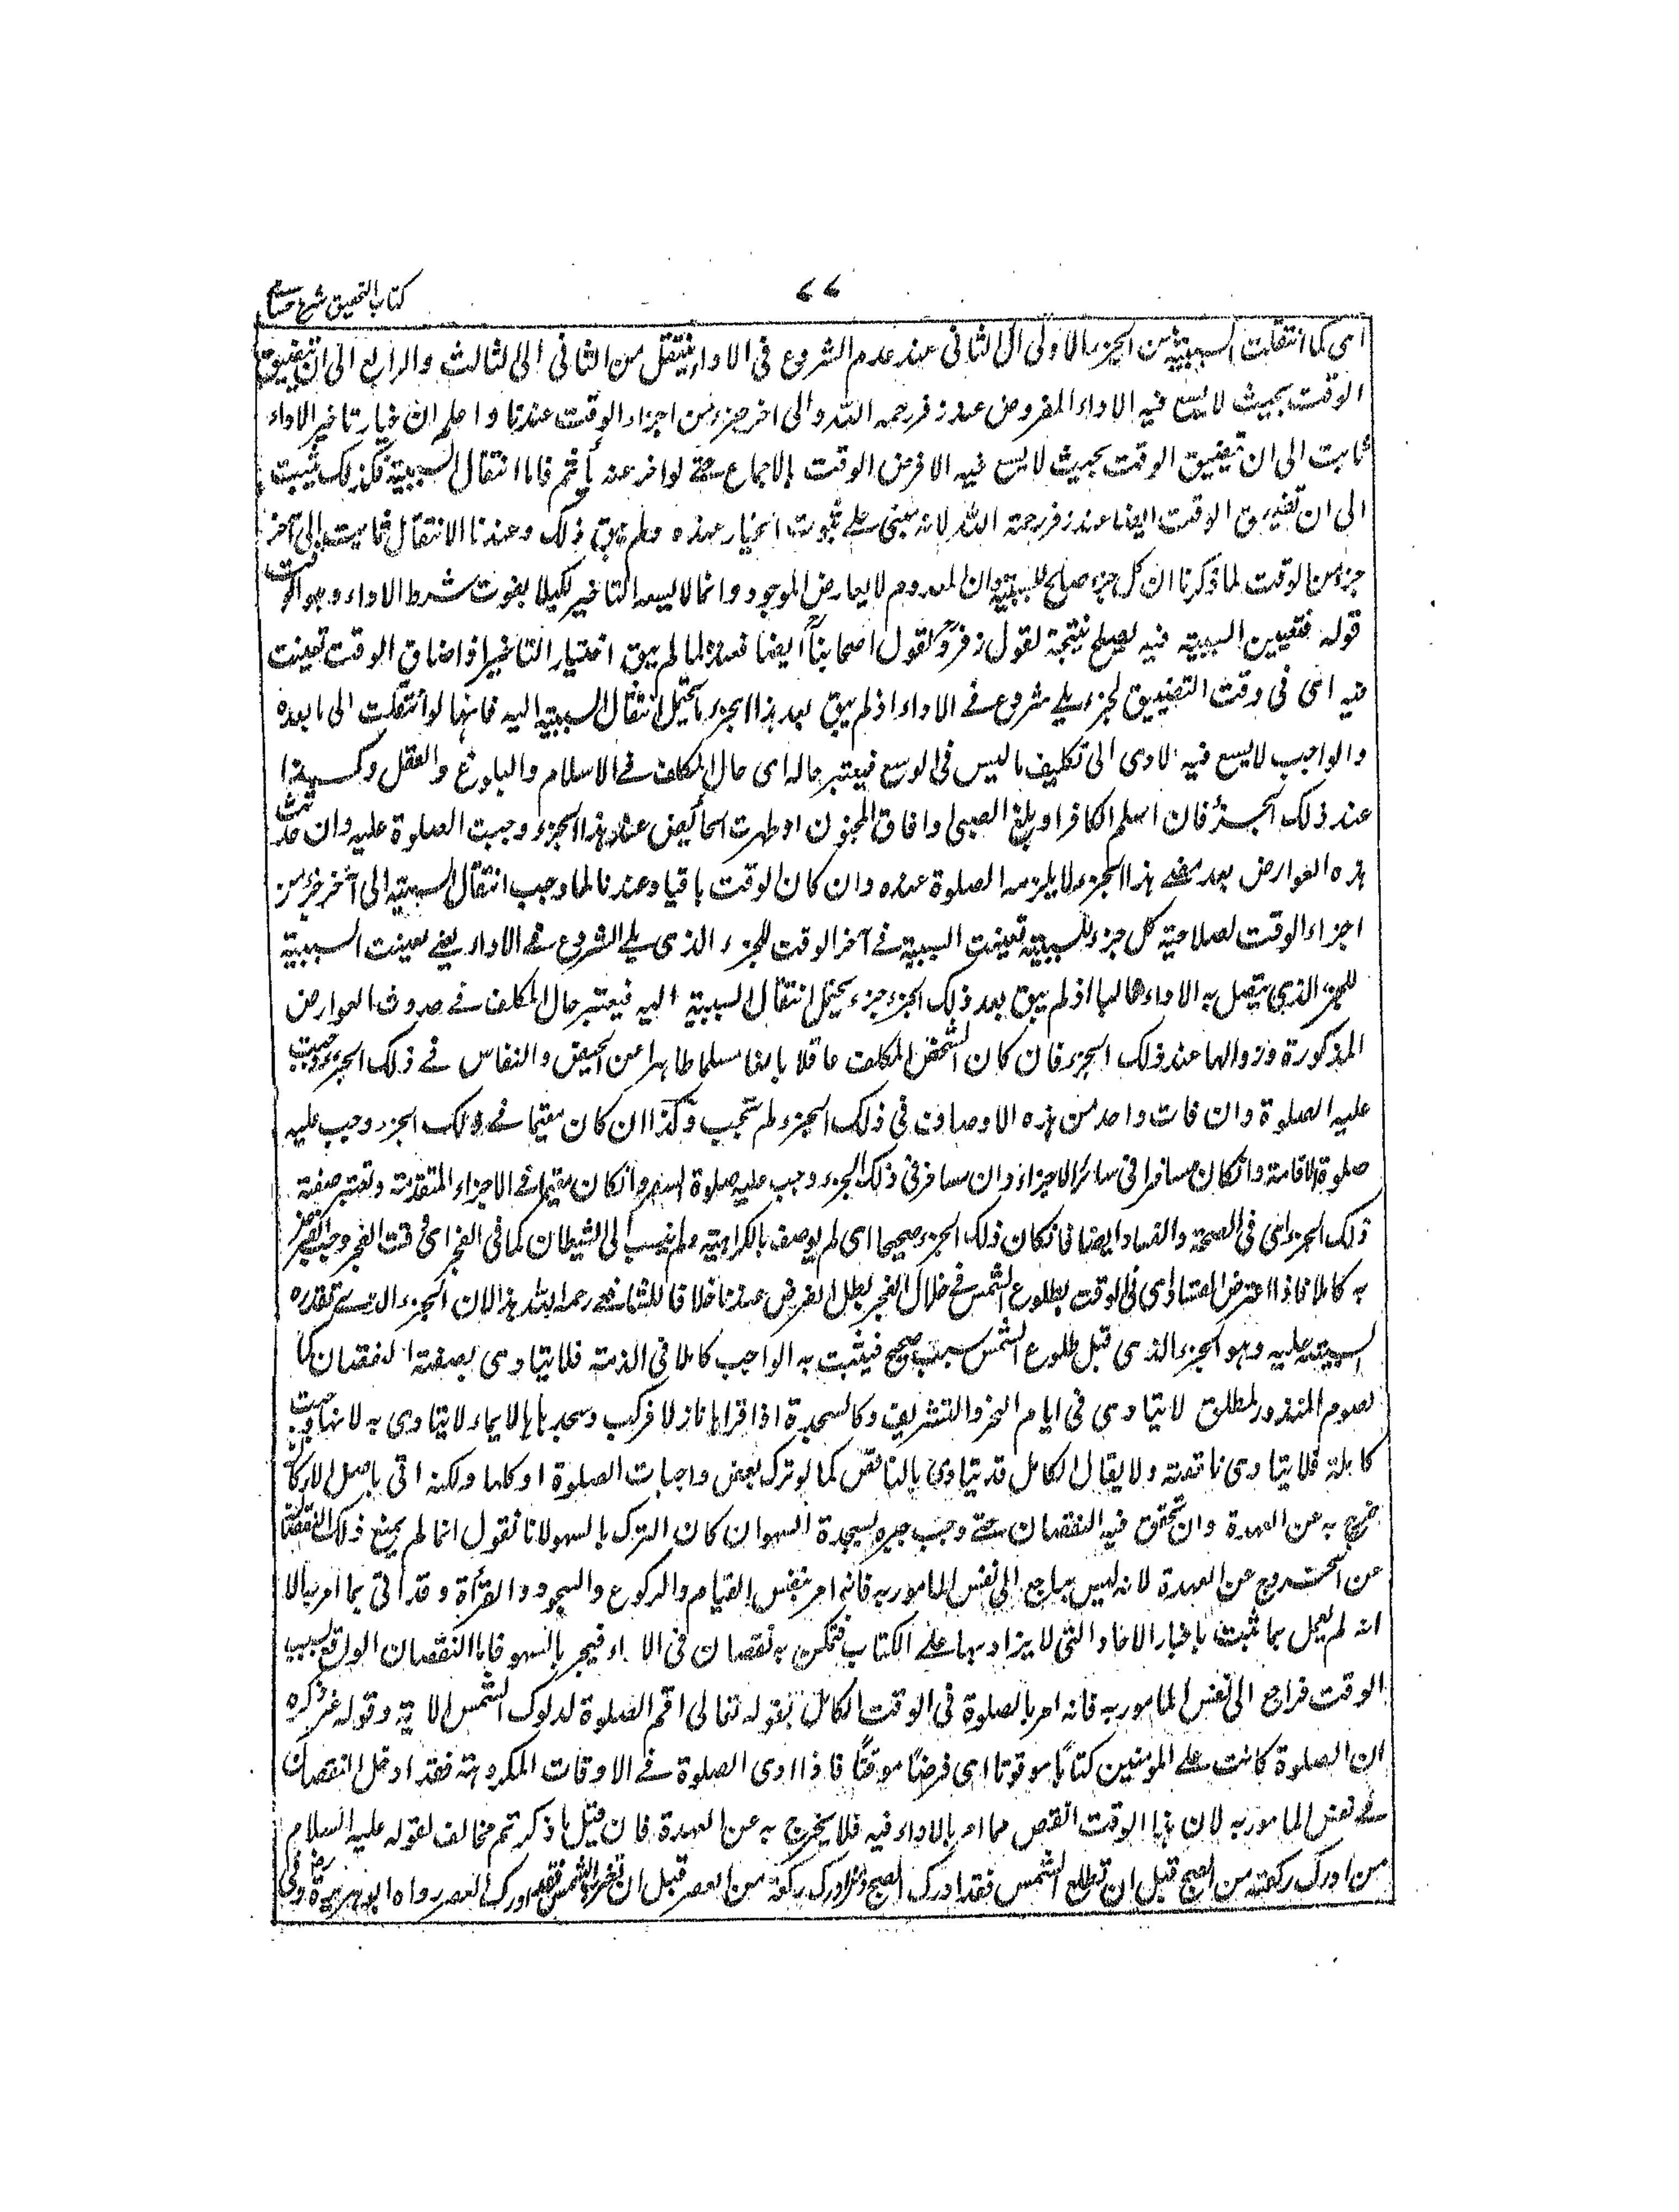 كتاب التحقيق شرح حسامي
٧٧
اى كما انتقلت السببية من الجزء الاول الى الثانى عند عدم الشروع فى الاداء ينتقل من الثانى الى الثالث والرابع الى ان يتضيق
الوقت بحيث لا يسع فيه الاداء المفروض عند زفر رحمه الله والى اخر جزء من اجزاء الوقت عندنا واعلم ان خيار تاخير الاداء
ثابت الى ان تضيق الوقت بحيث لا يسع فيه الا فرض الوقت بالاجماع حتى لو اخر عنه يأثم فاما انتقال السببية فكذلك يثبت
الى ان تضيق الوقت ايضا عند زفر رحمة الله لانه مبنى على ثبوت الخيار عنده ولم يبق ذلك وعندنا الانتقال ثابت الى آخر
جزء من الوقت لما ذكرنا ان كل جزء صالح للسببية وان المعدوم لا يعارض الموجود وانما لا يسعه التاخير لكيلا يفوت شرط الاداء وهو الوقت
قوله فتعين السببية فيه يصلح نتيجة لقول زفرؒ ولقول اصحابناؒ ايضا فعنده لما لم يبق اختيار التاخير اذا ضاق الوقت تعينت
فيه اى فى وقت التضييق لجزء يلى شروع فى الاداء اذ لم يبق بعد هذا الجزء ما يحتمل انتقال السببية اليه فانها لو انتقلت الى ما بعده
والواجب لا يسع فيه لادى الى تكليف ما ليس فى الوسع فيعتبر حاله اى حال المكلف فى الاسلام والبلوغ والعقل وكسبها
عند ذلك الجزء فان اسلم الكافر او بلغ الصبى او افاق المجنون او طهرت الحائض عند هذا الجزء وجبت الصلوة عليه وان حدثت
هذه العوارض بعد مضى هذا الجزء لا يلزمه الصلوة عنده وان كان الوقت باقيا وعندنا لما وجب انتقال السببية الى آخر جزء من
اجزاء الوقت لصلاحية كل جزء للسببية تعينت السببية فى آخر الوقت للجزء الذى يلى الشروع فى الاداء يعنى تعينت السببية
للجزء الذى يتصل به الاداء اذ لم يبق بعد ذلك الجزء جزء يحتمل انتقال السببية اليه فيعتبر حال المكلف فى حدوث العوارض
المذكورة وزوالها عند ذلك الجزء فان كان الشخص المكلف عاقلا بالغا مسلما طاهرا عن الحيض والنفاس فى ذلك الجزء وجبت
عليه الصلوة وان فات واحد من هذه الاوصاف فى ذلك الجزء لم تجب وكذا ان كان مقيما فى ذلك الجزء وجب عليه
صلوة الاقامة وان كان مسافرا فى سائر الاجزاء وان سافر فى ذلك الجزء وجب عليه صلوة السفر وان كان مقيما فى الاجزاء المتقدمة وتعتبر صفة
ذلك الجزء اى فى الصحة والفساد ايضا فان كان ذلك الجزء صحيحا اى لم يوصف بالكراهية ولم ينسب الى الشيطان كما فى الفجر اى فى وقت الفجر وجب الفرض
به كاملا فاذا اعترض الفساد اى فى الوقت بطلوع الشمس فى خلال الفجر بطل الفرض عندنا خلافا للشافعى رحمه الله هذا لان الجزء الذى تقرره
السببية عليه وهو الجزء الذى قبل طلوع الشمس سبب صحيح فيثبت به الواجب كاملا فى الذمة فلا يتادى بصفة النقصان كما
لصوم المنذور المطلق لا يتادى فى ايام النحر والتشريق وكالسجدة اذا قراها نازلا فركب وسجدها بالايماء لا يتادى به لانها وجبت
كاملة فلا يتادى ناقصة ولا يقال الكامل قد يتادى بالناقص كما لو ترك بعض واجبات الصلوة او كلها ولكنه اتى باصل الاركان
خرج به عن العهدة وان تحقق فيه النقصان حتى وجب جبره بسجدة السهو ان كان الترك بالسهو لانا نقول انما لم يمنع ذلك النقصان
عن الخروج عن العهدة لانه ليس براجع الى نفس المامور به فانه امر بنفس القيام والركوع والسجود والقرأة وقد اتى بما امر به الا
انه لم يعمل بما ثبت باخبار الاحاد التى لا يزاد بها على الكتاب فتمكن به نقصان فى الاداء فيجبر بالسهو فاما النقصان الواقع بسبب
الوقت فراجع الى نفس المامور به فانه امر بالصلوة فى الوقت الكامل بقوله تعالى اقم الصلوة لدلوك الشمس الاية وقوله عز ذكره
ان الصلوة كانت على المومنين كتابًا موقوتا اى فرضًا موقتًا فاذا ادى الصلوة فى الاوقات المكروهة فقد ادخل النقصان
فى نفس المامور به لان هذا الوقت انقص مما امر بالاداء فيه فلا يخرج به عن العهدة فان قيل ما ذكرتم مخالف لقوله عليه السلام
من ادرك ركعة من الصبح قبل ان تطلع الشمس فقد ادرك الصبح ومن ادرك ركعة من العصر قبل ان تغرب الشمس فقد ادرك العصر رواه ابو هريرةؓ وفى